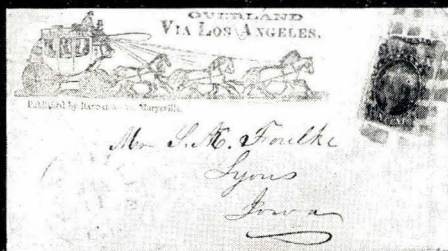 OVERLAND
VIA LOS ANGELES.
Published by Marysville.
Mr S. K. Foulke
Lyons
Iowa